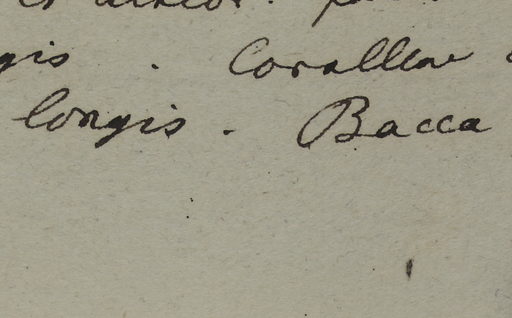 gis . Corollae
longis . Bacca